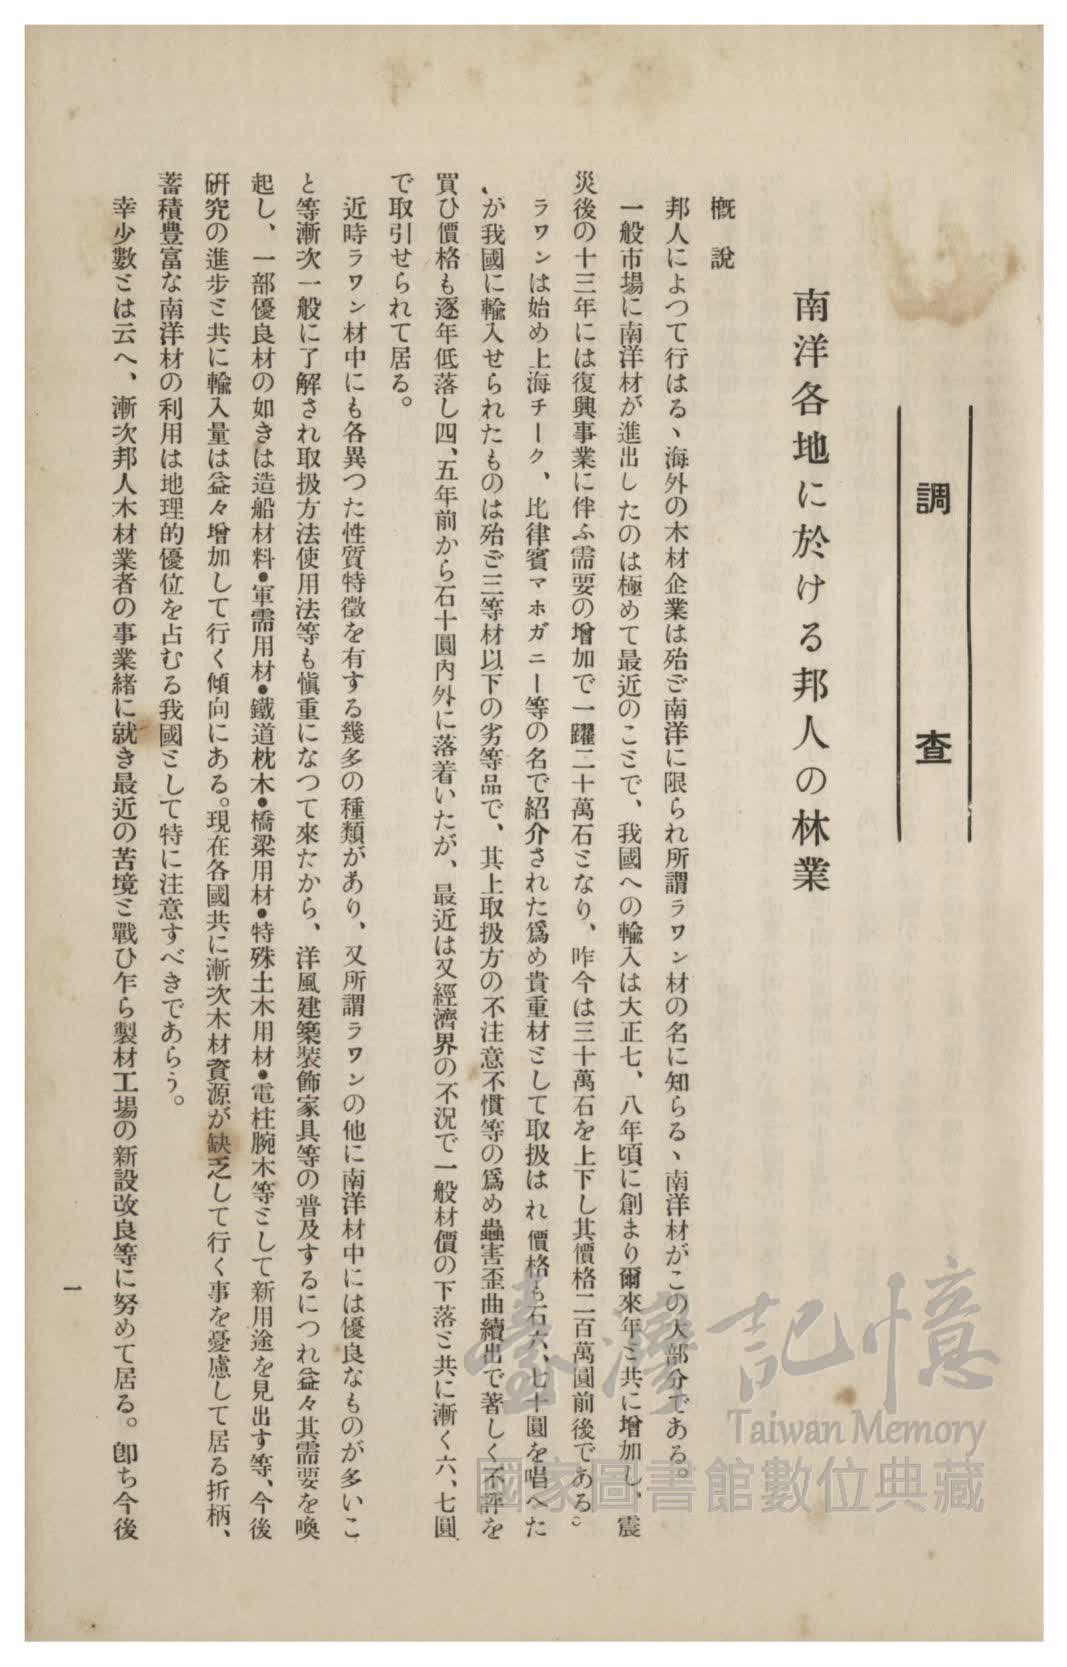 調査
南洋各地に於ける邦人の林業
概說
邦人によつて行はるゝ海外の木材企業は殆ど南洋に限られ所謂ラワン材の名に知らるゝ南洋材がこの大部分である。
一般市場に南洋材が進出したのは極めて最近のことで、我國への輸入は大正七、八年頃に創まり爾來年と共に增加し、震
災後の十三年には復興事業に伴ふ需要の增加で一躍二十萬石となり、昨今は三十萬石を上下し其價格二百萬圓前後である。
ラワンは始め上海チーク、比律賓マホガニー等の名で紹介された爲め貴重材として取扱はれ價格も石六、七十圓を唱へた
が我國に輸入せられたものは殆ど三等材以下の劣等品で、其上取扱方の不注意不慣等の爲め蟲害歪曲續出で著しく不評を
買ひ價格も逐年低落し四、五年前から石十圓內外に落着いたが、最近は又經濟界の不況で一般材價の下落と共に漸く六、七圓
で取引せられて居る。
近時ラワン材中にも各異つた性質特徵を有する幾多の種類があり、又所謂ラワンの他に南洋材中には優良なものが多いこ
と等漸次一般に了解され取扱方法使用法等も愼重になつて來たから、洋風建築裝飾家具等の普及するにつれ益々其需要を喚
起し、一部優良材の如きは造船材料•軍需用材•鐵道枕木•橋梁用材•特殊土木用材•電柱腕木等として新用途を見出す等、今後
硏究の進步と共に輸入量は益々增加して行く傾向にある。現在各國共に漸次木材資源が缺乏して行く事を憂慮して居る折柄、
蓄積豐富な南洋材の利用は地理的優位を占むる我國として特に注意すべきであらう。
幸少數とは云へ、漸次邦人木材業者の事業緖に就き最近の苦境と戰ひ乍ら製材工場の新設改良等に努めて居る。卽ち今後
一
臺灣記憶
Taiwan Memory
國家圖書館數位典藏